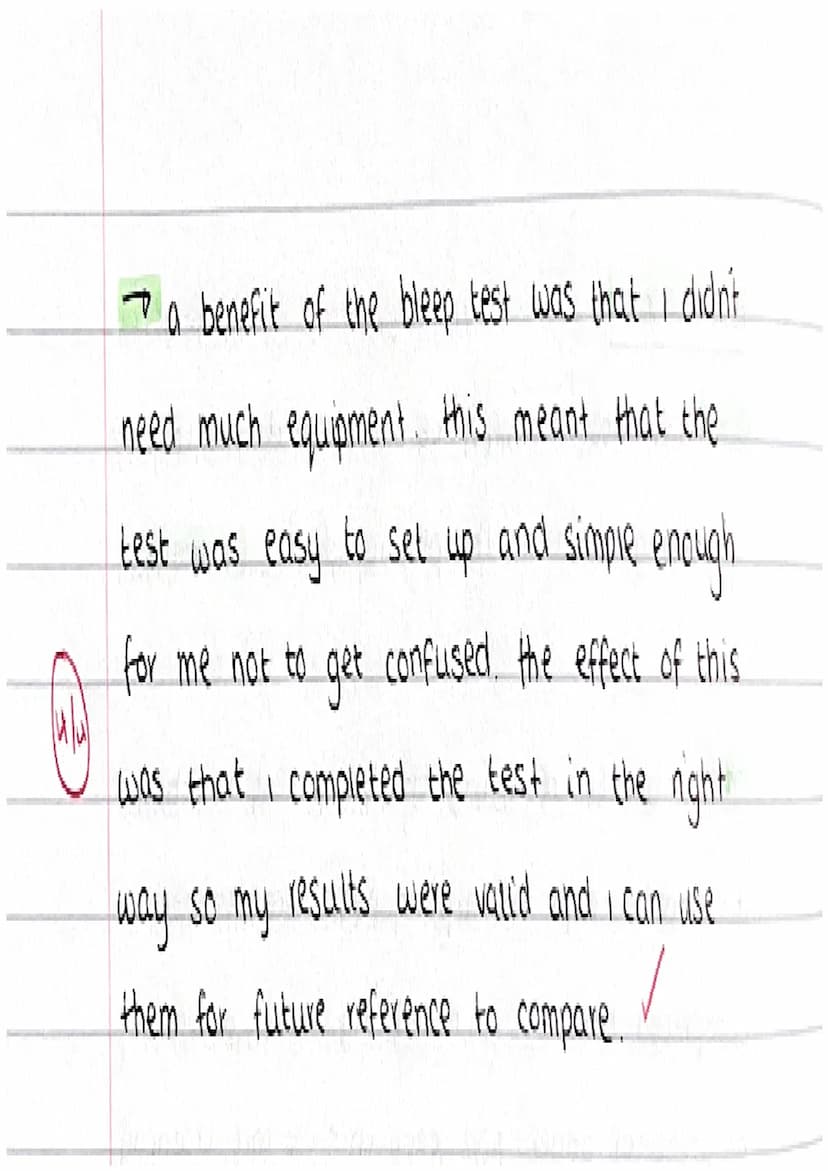 → a benefit of the bleep test was that i didn't
need much equipment. this meant that the
test was easy to set up and simple enough
for me not to get confused. the effect of this
4/4
was that i completed the test in the right
way so my results were valid and i can use
them for future reference to compare. ✓